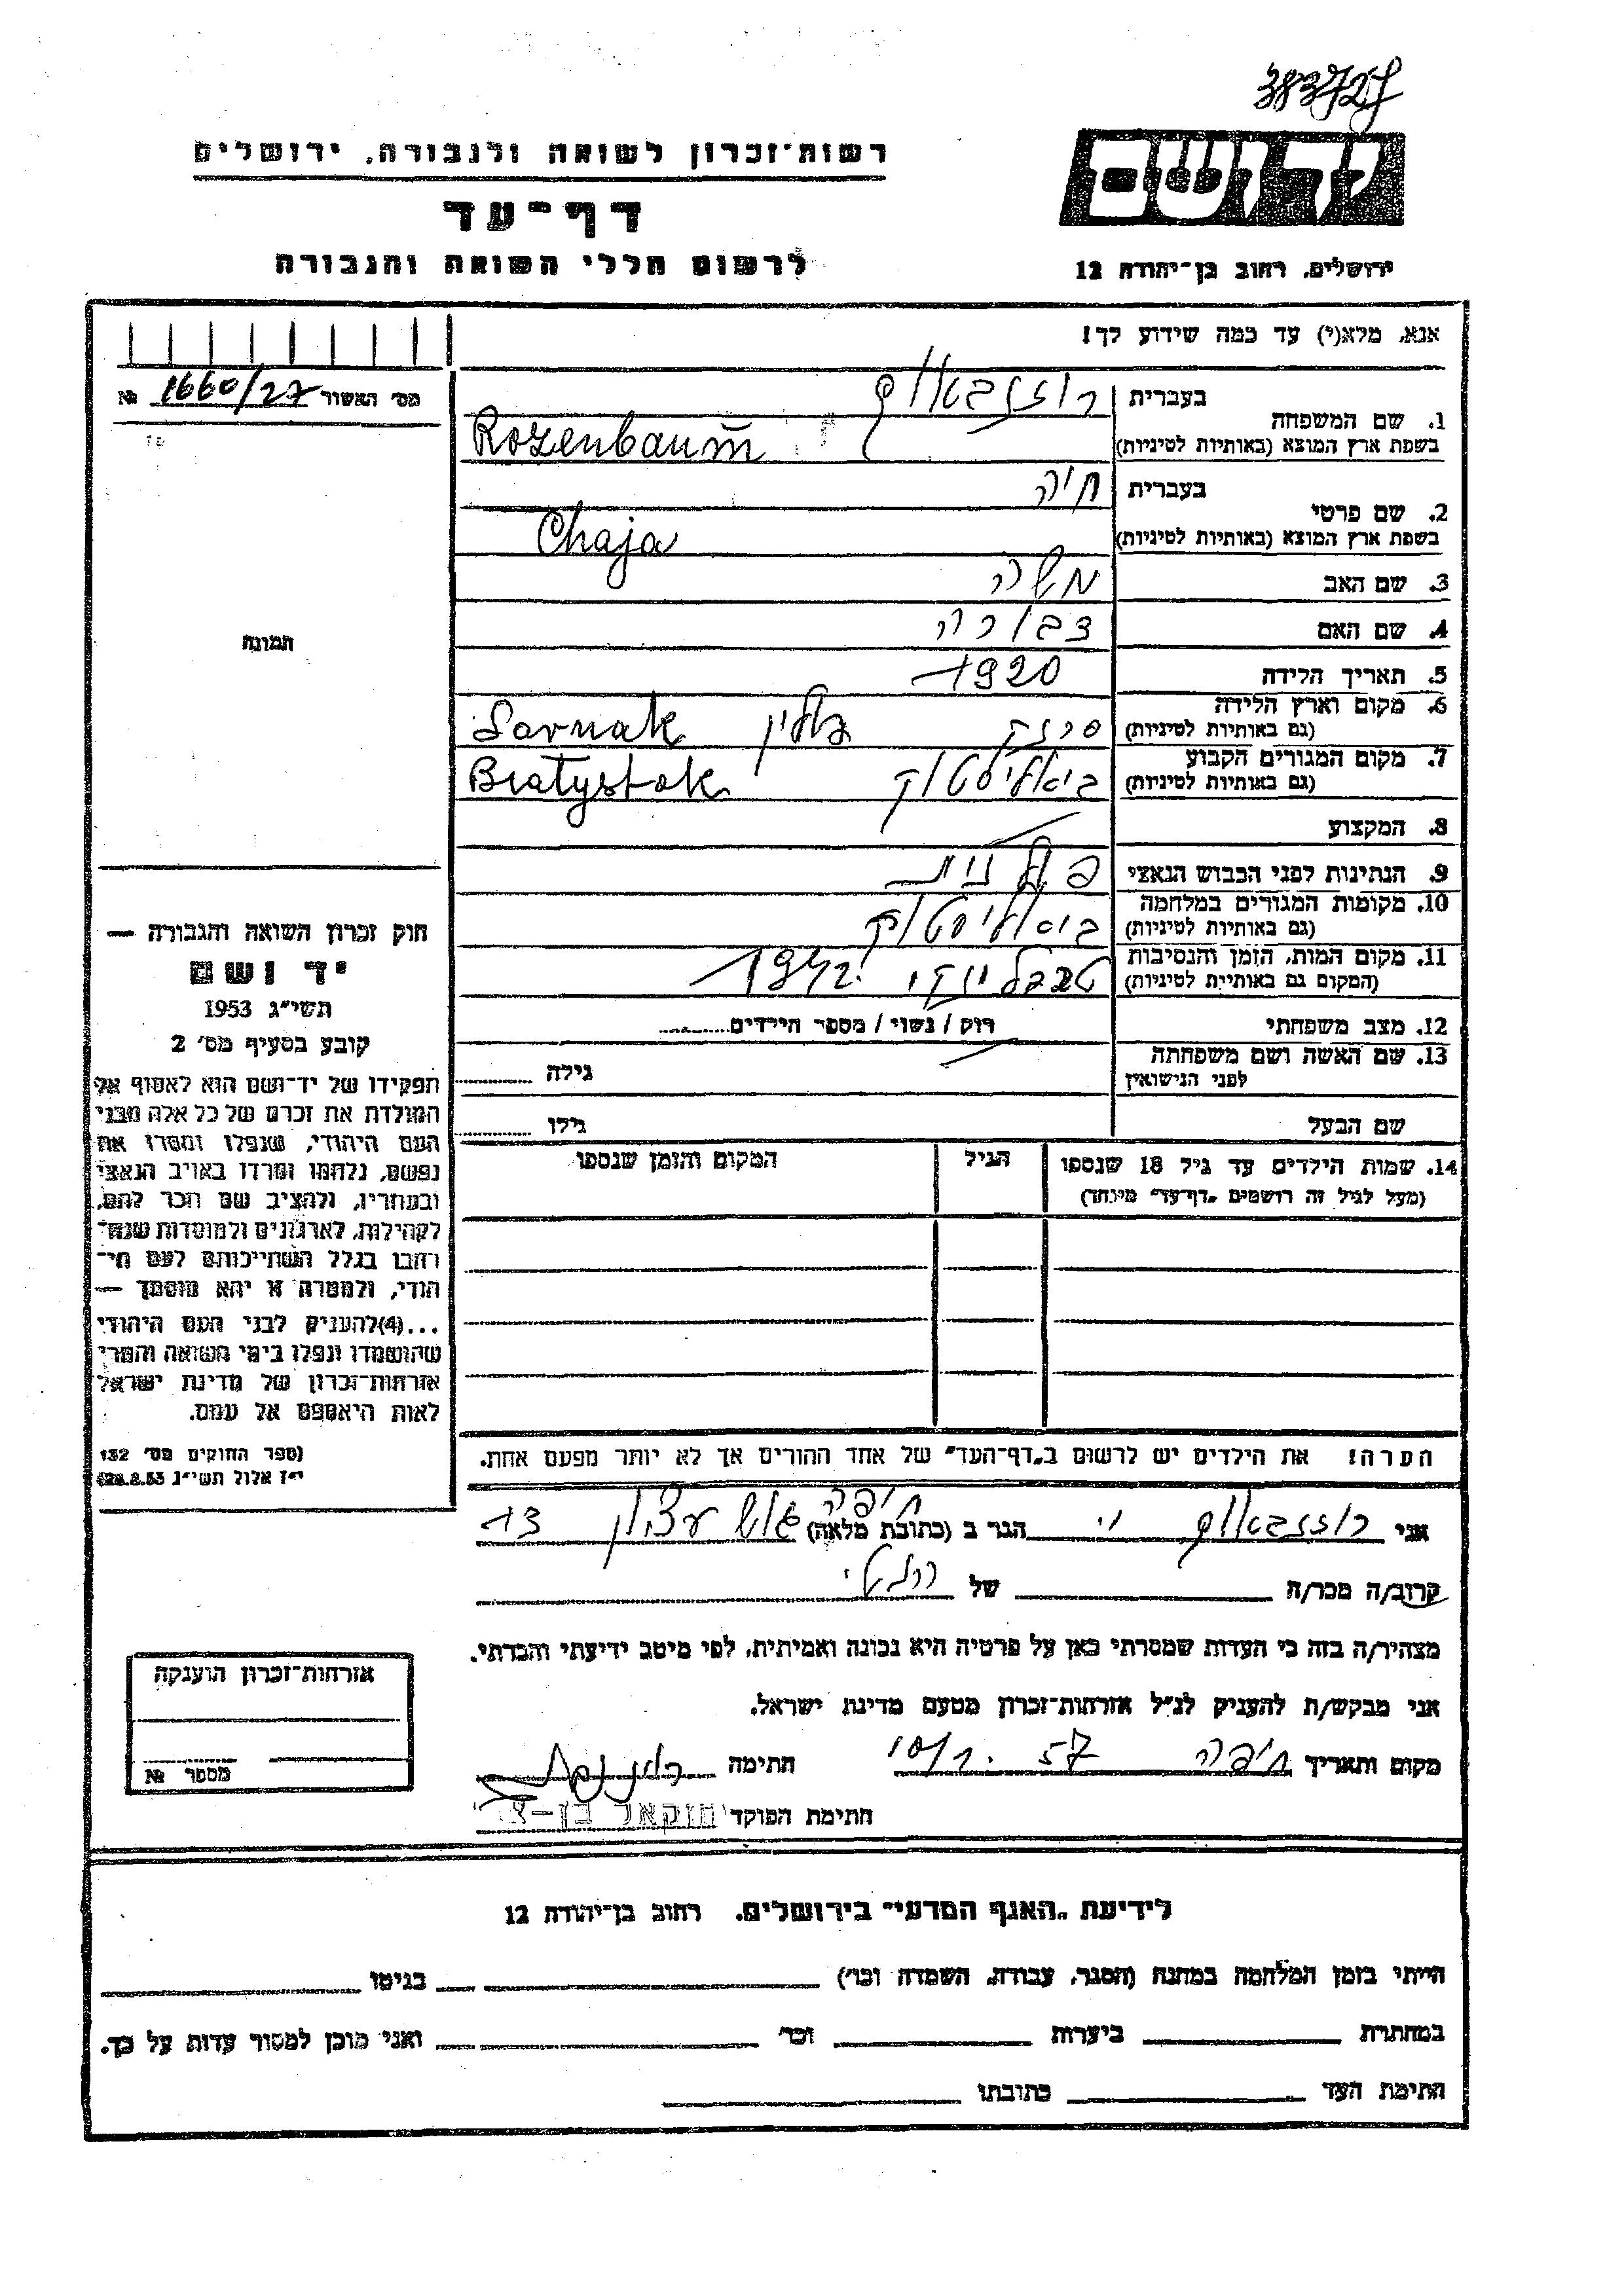 383727
רשות־זכרון לשואה ולגבורה, ירושלים
יד ושם
דף־עד
לרשום חללי השואה והגבורה
ירושלים, רחוב בן־יהודה 12
אנא, מלא(י) עד כמה שידוע לך!
מס׳ האשור № 1660/27
תמונה
1. שם המשפחה
בעברית
בשפת ארץ המוצא (באותיות לטיניות) Rozenbaum
2. שם פרטי
בעברית חיה
בשפת ארץ המוצא (באותיות לטיניות) Chaja
3. שם האב משה
4. שם האם דבורה
5. תאריך הלידה 1920
6. מקום וארץ הלידה פולין Sarnak
(גם באותיות לטיניות)
7. מקום המגורים הקבוע ביאליסטוק Białystok
(גם באותיות לטיניות)
8. המקצוע
9. הנתינות לפני הכבוש הנאצי פולנית
10. מקומות המגורים במלחמה ביאליסטוק
(גם באותיות לטיניות)
11. מקום המות, הזמן והנסיבות טרבלינקי 1942
(המקום גם באותיות לטיניות)
12. מצב משפחתי רוק / נשוי / מספר הילדים
13. שם האשה ושם משפחתה
לפני הנישואין גילה
שם הבעל גילו
14. שמות הילדים עד גיל 18 שנספו
(מעל לגיל זה רושמים „דף־עד״ מיוחד)
הגיל
המקום והזמן שנספו
הערה! את הילדים יש לרשום ב„דף־העד״ של אחד ההורים אך לא יותר מפעם אחת.
חוק זכרון השואה והגבורה —
יד ושם
תשי״ג 1953
קובע בסעיף מס׳ 2
תפקידו של יד־ושם הוא לאסוף אל
המולדת את זכרם של כל אלה מבני
העם היהודי, שנפלו ומסרו את
נפשם, נלחמו ומרדו באויב הנאצי
ובעוזריו, ולהציב שם וזכר להם,
לקהילות, לארגונים ולמוסדות שנח־
רבו בגלל השתייכותם לעם הי־
הודי, ולמטרה זו יהא מוסמך —
...(4)להעניק לבני העם היהודי
שהושמדו ונפלו בימי השואה והמרי
אזרחות־זכרון של מדינת ישראל
לאות היאספם אל עמם.
(ספר החוקים מס׳ 132
י״ז אלול תשי״ג 28.8.53)
אני הגר ב (כתובת מלאה) חיפה גוש עציון 13
קרוב/ה מכר/ה של
מצהיר/ה בזה כי העדות שמסרתי כאן על פרטיה היא נכונה ואמיתית, לפי מיטב ידיעתי והכרתי.
אני מבקש/ת להעניק לנ״ל אזרחות־זכרון מטעם מדינת ישראל.
מקום ותאריך חיפה 10/1. 57 חתימה
חתימת הפוקד
אזרחות־זכרון הוענקה
מספר №
לידיעת „האגף המדעי״ בירושלים, רחוב בן־יהודה 12
הייתי בזמן המלחמה במחנה (הסגר, עבודה, השמדה וכו׳) בגיטו
במחתרת ביערות וכו׳ ואני מוכן למסור עדות על כך.
חתימת העד כתובתו